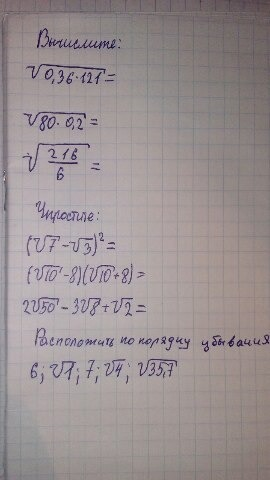 Вычислите:
√0,36·121 =
√80·0,2 =
√216/6 =
Упростите:
(√7 - √3)² =
(√10 - 8)(√10 + 8) =
2√50 - 3√8 + √2 =
Расположить по порядку убывания
6; √1; 7; √4; √35,7